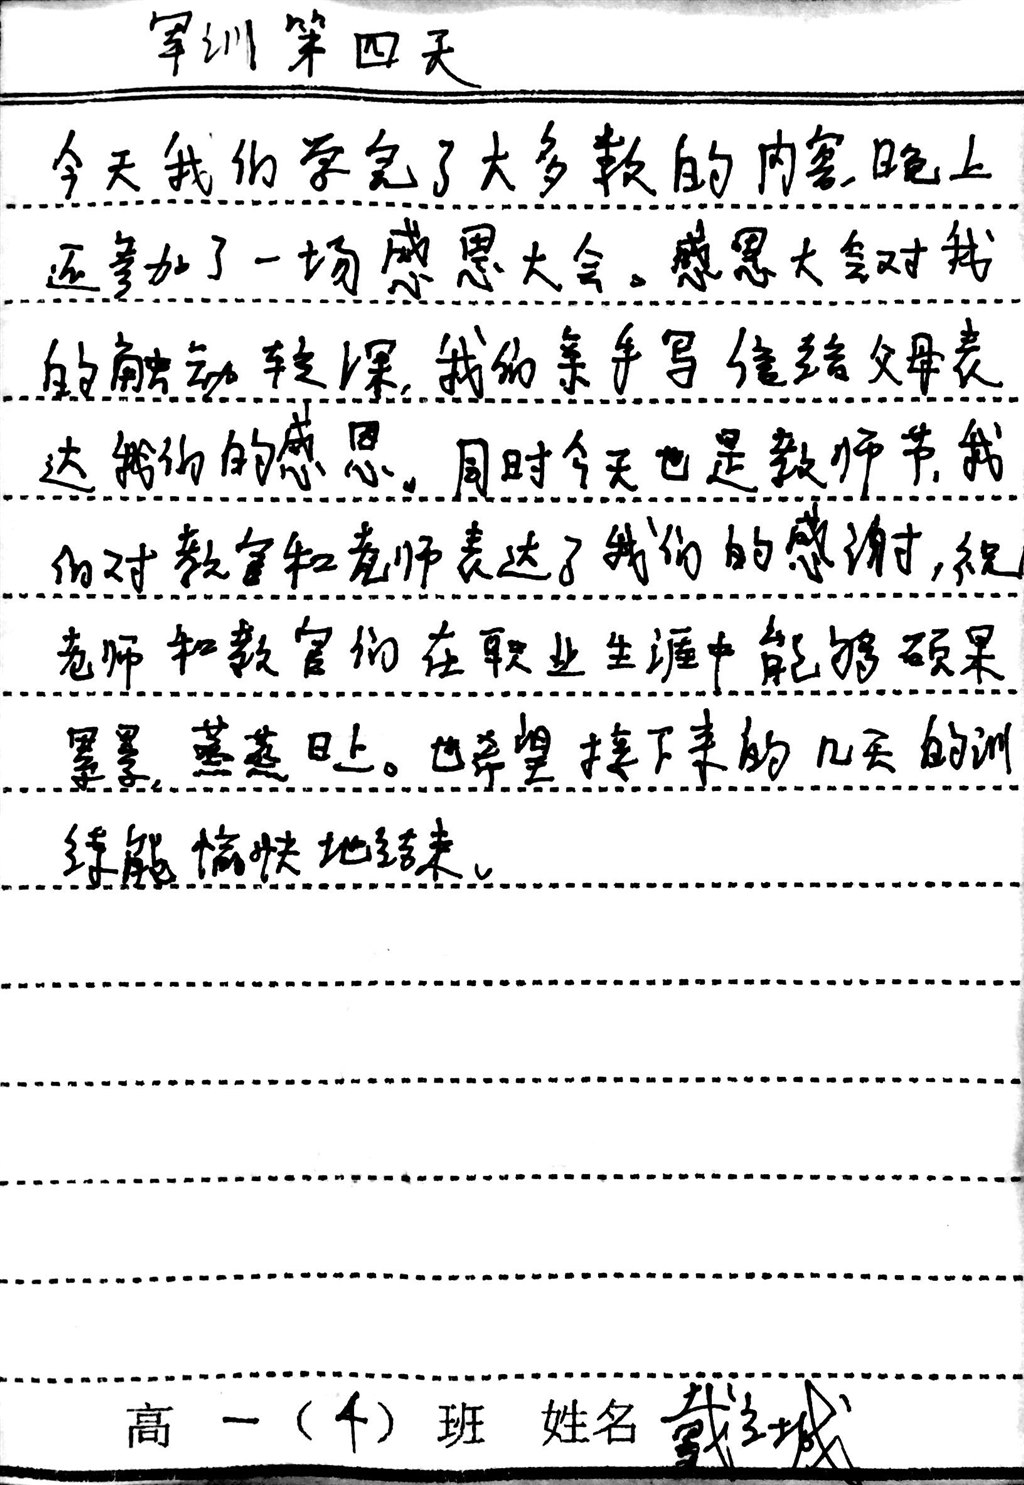 军训第四天
今天我们学完了大多数的内容,晚上
还参加了一场感恩大会。感恩大会对我
的触动较深,我们亲手写信给父母表
达我们的感恩。同时今天也是教师节,我
们对教官和老师表达了我们的感谢,祝
老师和教官们在职业生涯中能够硕果
累累,蒸蒸日上。也希望接下来的几天的训
练能愉快地结束。
高一(4)班 姓名 戴